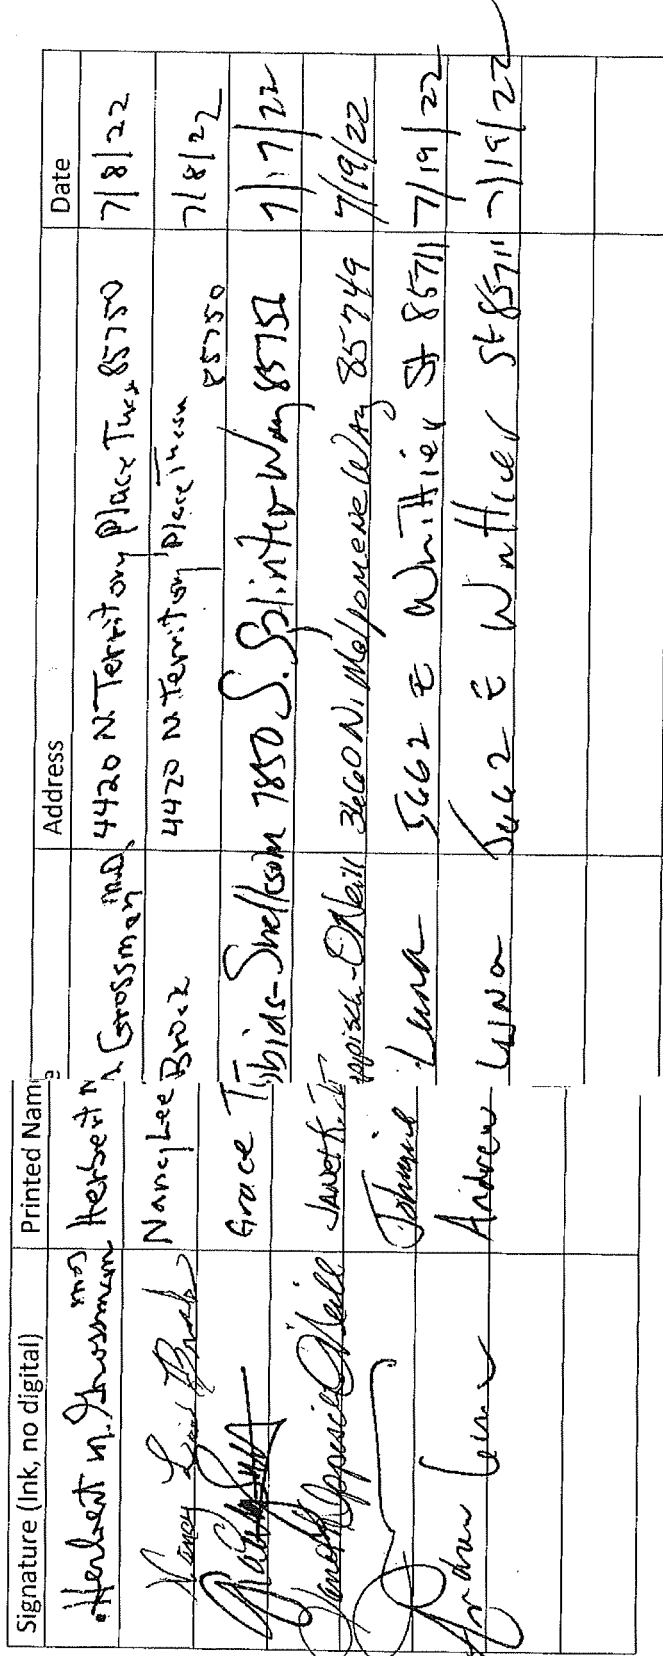 Signature (Ink, no digital) Printed Name Address Date
Herbert M. Grossman MD Herbert M Grossman M.D. 4420 N. Territory Place 85750 7/8/22
Nancy Brock Nancy Lee Brock 4420 N Territory Place Tucson 85750 7/8/22
Grace 7850 S. Splinter Way 85756 7/17/22
O'Neill Janet K. O'Neill 3660 N. Melpomene Way 85749 7/19/22
Johnnie Luna 5662 E Whittier St 85711 7/19/22
Andrew Luna Andrew Luna 5662 E Whittier St 85711 7/19/22